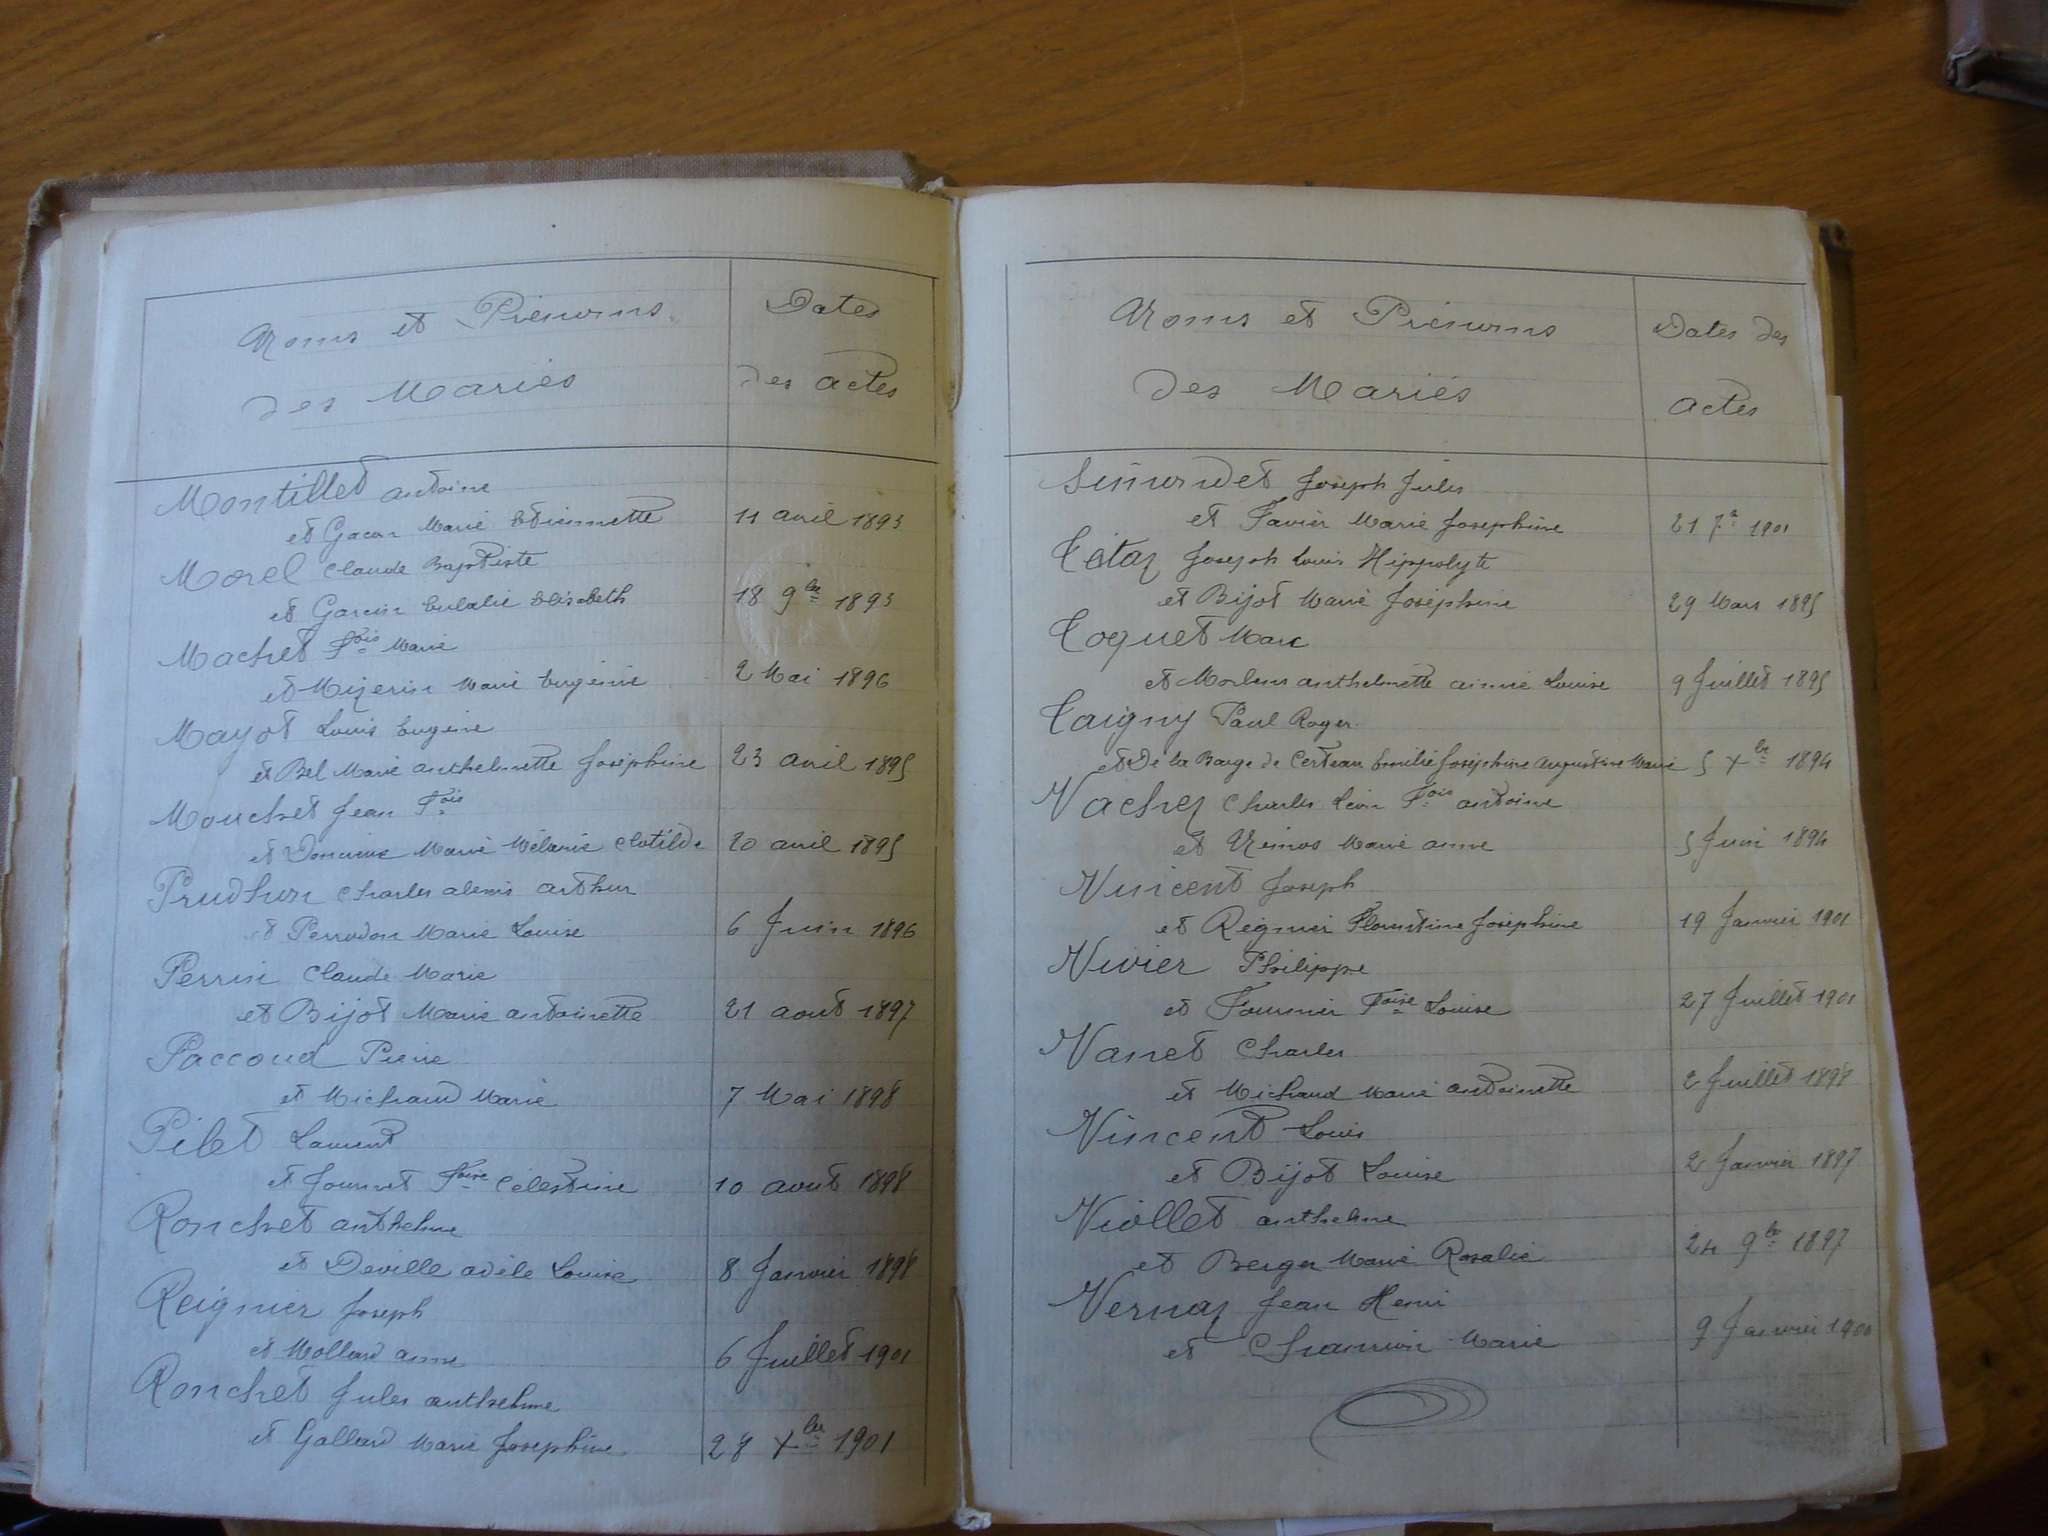 Noms et Prénoms
des Mariés
Dates
des actes
Montillet antoine
et Gacon Marie Etiennette 11 avril 1893
Morel Claude Baptiste
et Garcin Eulalie Elisabeth 18 9bre 1893
Machet Fois Marie
et Mijerin Marie Eugénie 2 Mai 1896
Mayot Louis Eugène
et Bel Marie anthelmette Joséphine 23 avril 1895
Mouchet Jean Fois
et Marie Mélanie Clotilde 20 avril 1895
Prudhon Charles alexis arthur
et Perrodon Marie Louise 6 Juin 1896
Perrin Claude Marie
et Bijot Marie antoinette 21 aout 1897
Paccoud Pierre
et Michaud Marie 7 Mai 1898
Pilet Laurent
et Journet Foise Célestine 10 aout 1898
Ronchet anthelme
et Deville adèle Louise 8 Janvier 1898
Reignier Joseph
et Mollard anne 6 Juillet 1901
Ronchet Jules anthelme
et Gallard Marie Joséphine 28 Xbre 1901
Noms et Prénoms
des Mariés
Dates des
actes
Simondet Joseph Jules
et Favier Marie Josephine 21 1901
Tétaz Joseph Louis Hippolyte
et Bijot Marie Joséphine 29 Mars 1895
Toquet Marc
et anthelmette aimée Louise 9 Juillet 1895
Taigny Paul Roger
et De la Barge de Certeau Emilie Joséphine Augustine Marie 5 Xbre 1894
Vachez Charles Léon Fois antoine
et Marie anne 5 Juin 1894
Vincent Joseph
et Régnier Florentine Joséphine 19 Janvier 1901
Vivier Philippe
et Fournier Foise Louise 27 Juillet 1901
Vanet Charles
et Michaud Marie antoinette 2 Juillet 1898
Vincent Louis
et Bijot Louise 2 Janvier 1897
Viollet anthelme
et Berger Marie Rosalie 24 9bre 1897
Vernaz Jean Henri
et Marie 9 Janvier 1900